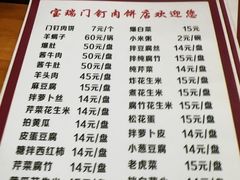 宝瑞门钉肉饼店欢迎您
门钉肉饼 7元/个 爆白菜 15元
羊蝎子 60元/锅 小米粥 2元/
爆肚 50元/盘 拌豆腐丝 14元/
酱牛肉 50元/盘 拌炖粉 14元/
酱牛肚 50元/盘 纯芹菜 14元/
羊头肉 45元/盘 炸花生米 14元/
麻豆腐 15元/盘 煮花生米 14元/
拌萝卜丝 14元/盘 腐竹花生米 15元/
拍黄瓜 14元/盘 松花蛋 15元/
皮蛋豆腐 14元/盘 拌萝卜皮 14元/
糖拌西红柿 14元/盘 小葱豆腐 14元/
芹菜腐竹 14元/盘 老虎菜 15元/